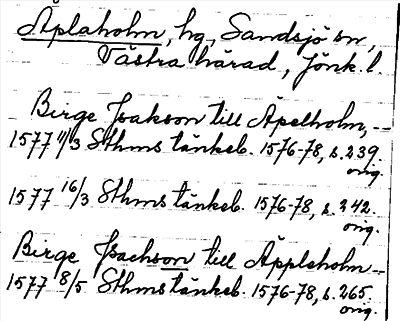 Äplaholm, hg, Sandsjö sn,
Västra härad, Jönk. l.
Birge Isakson till Äpelholm, --
1577 11/3 Sthms tänkeb. 1576-78, s. 239.
orig.
1577 16/3 Sthms tänkeb. 1576-78, s. 242.
orig.
Birge Isachson till Äppleholm --
1577 8/5 Sthms tänkeb. 1576-78, s. 265.
orig.